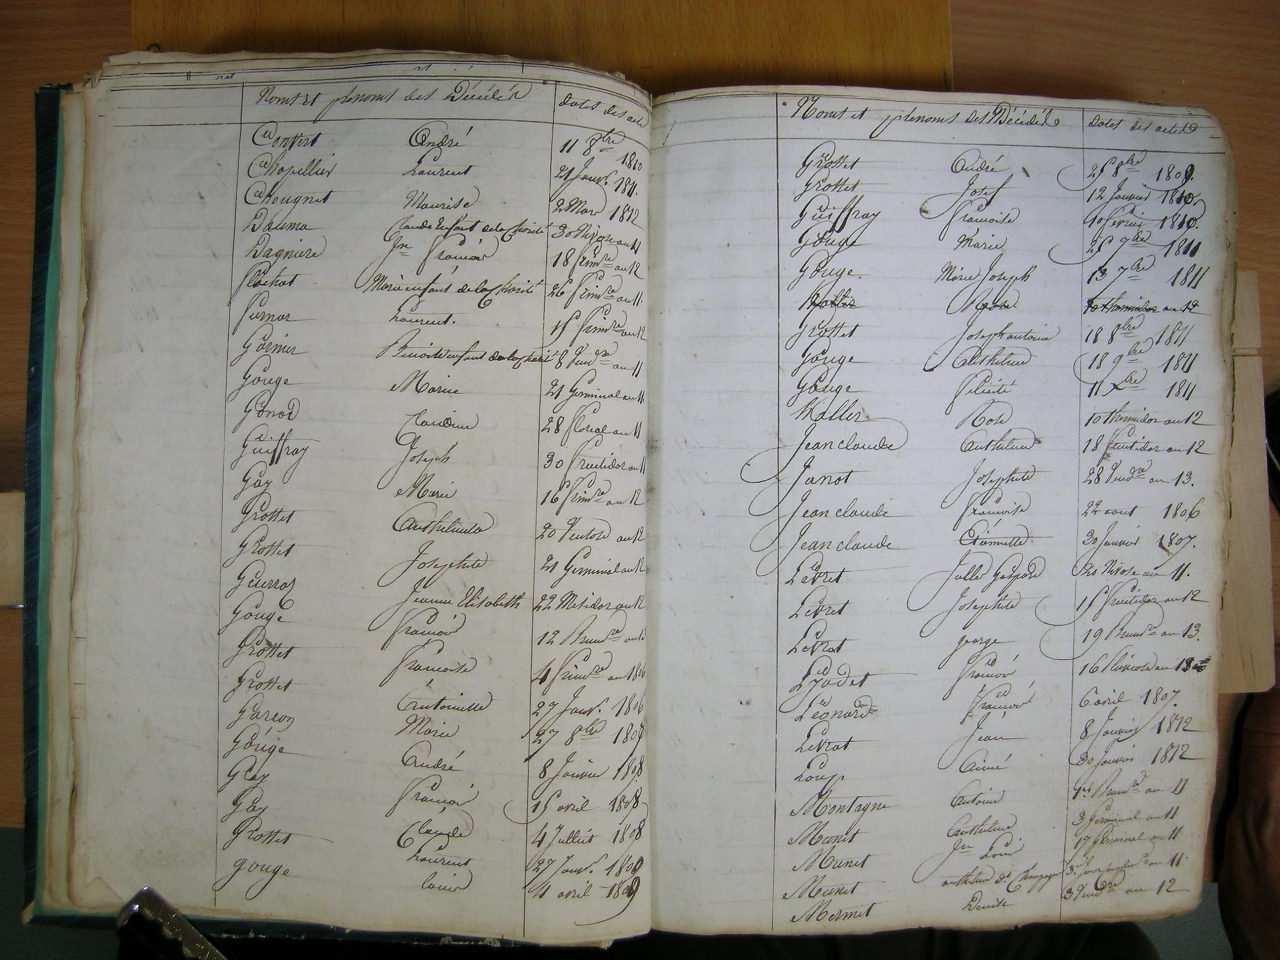 Noms et prénoms des Décédés dates des acte
Convert André 11 8bre 1810
Chapellier Laurent 21 Janv. 1811
Maurise 2 Mars 1812
Dauma Claude enfant de la Charité 30 Nivose an 11
Dagniere Jn François 18 frimre an 12
Flochot Marie enfant de la Charité 26 frimre an 11
Laurent. 15 frimre an 12
Gormier enfant de la charité 8 Vendre an 11
Gouge Marie 21 Germinal an 11
Gonod Claudine 28 floreal an 11
Guiffray Joseph 30 fructidor an 11
Gay Marie 16 frimre an 12
Grosset Anthelmete 20 Ventose an 12
Grosset Josephte 21 Germinal an 12
Jeanne Elisabeth 22 Messidor an 12
Gouge François 12 Brumre an
Grosset Françoise 4 frimre an 1806
Grosset Antoinette 27 Janv. 1806
Garçon Marie 27 8bre 1807
Gouge André 8 Janvier 1808
Gay François 15 avril 1808.
Gay Claude 4 Juillet 1808
Grosset Laurent 27 Janv. 1809
gouge 4 avril 1809
Noms et prénoms des Décédés Dates des actes
Grosset André 25 8bre 1809.
Grosset Josef 12 Janvier 1810
Guiffray Françoise 10 fevrier 1810
Gouge Marie 25 9bre 1811
Gouge. Marie Joseph 13 7bre 1811
Koller Rose 10 thermidor an 12
Grosset Joseph antoine 18 8bre 1811
Gouge Anthelme 18 9bre 1811
Gouge Félicité 11 Xbre 1811
Koller Rose 10 thermidor an 12
Jean claude Anthelme 18 fructidor an 12
Janot Josephte 28 Vendre an 13.
Jean claude françoise 22 aout 1806
Jean claude Etiennette 30 Janvier 1807.
Levret Jullie Gaspard 20 Nivose an 11.
Levret Josephte 15 fructidor an 12
Levrat george 19 Brumre an 13.
Lyodet François 16 Pluviose an 13
Léonard François 6 avril 1807.
Levrat Jean 8 Janvier 1812
Loup Aimé 30 Janvier 1812
Montagne Antoine 1er Brumre an 11
Munet Anthelme 3 Germinal an 11
Munet Jn Louis 17 Germinal an 11
Munet an 11
Mermet Denise 3 Vendre an 12